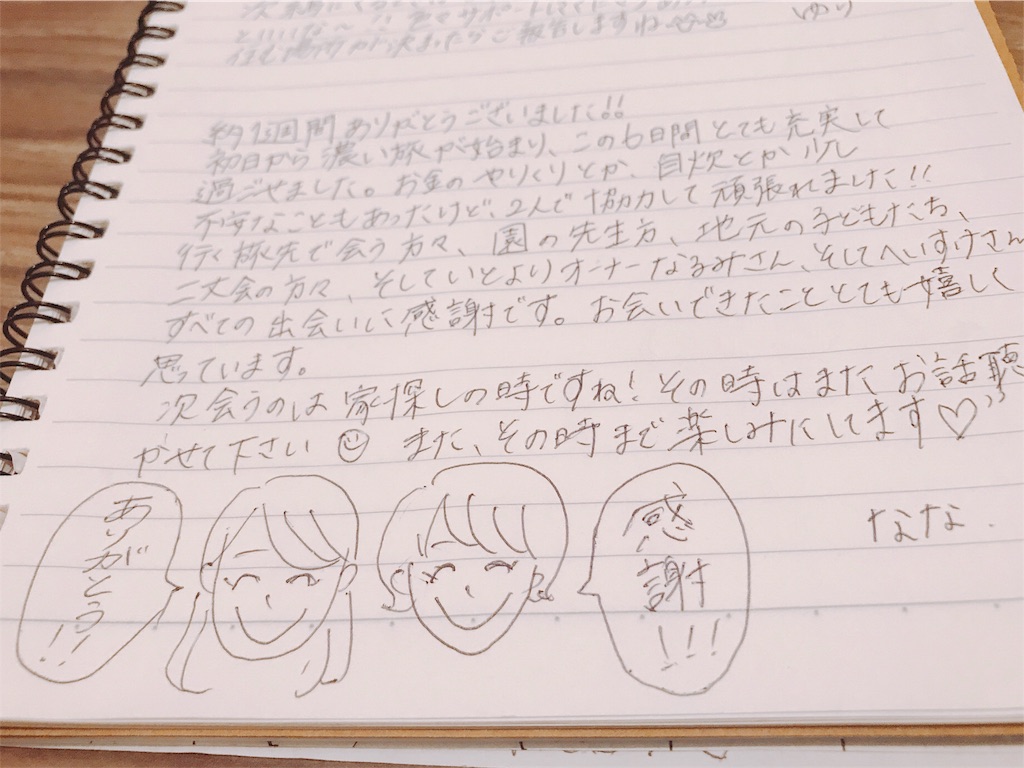 ゆり
約1週間ありがとうございました!!
初日から濃い旅が始まり、この6日間とても充実して
過ごせました。お金のやりくりとか、自炊とか少し
不安なこともあったけど、2人で協力して頑張れました!!
行く旅先で会う方々、園の先生方、地元の子どもたち、
二丈会の方々、そしていとよりオーナーなるみさん、そしてへいすけさん
すべての出会いに感謝です。お会いできたこととても嬉しく
思っています。
次会うのは家探しの時ですね!その時はまたお話聴
かせて下さい☺ また、その時まで楽しみにしてます♡
ありがとう!!
感謝!!!
なな.